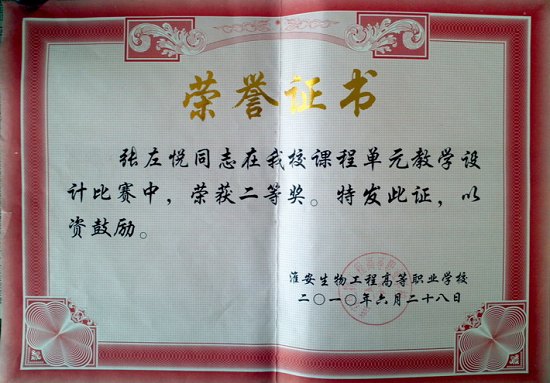 荣誉证书
张左悦同志在我校课程单元教学设
计比赛中，荣获二等奖。特发此证，以
资鼓励。
淮安生物工程高等职业学校
二〇一〇年六月二十八日